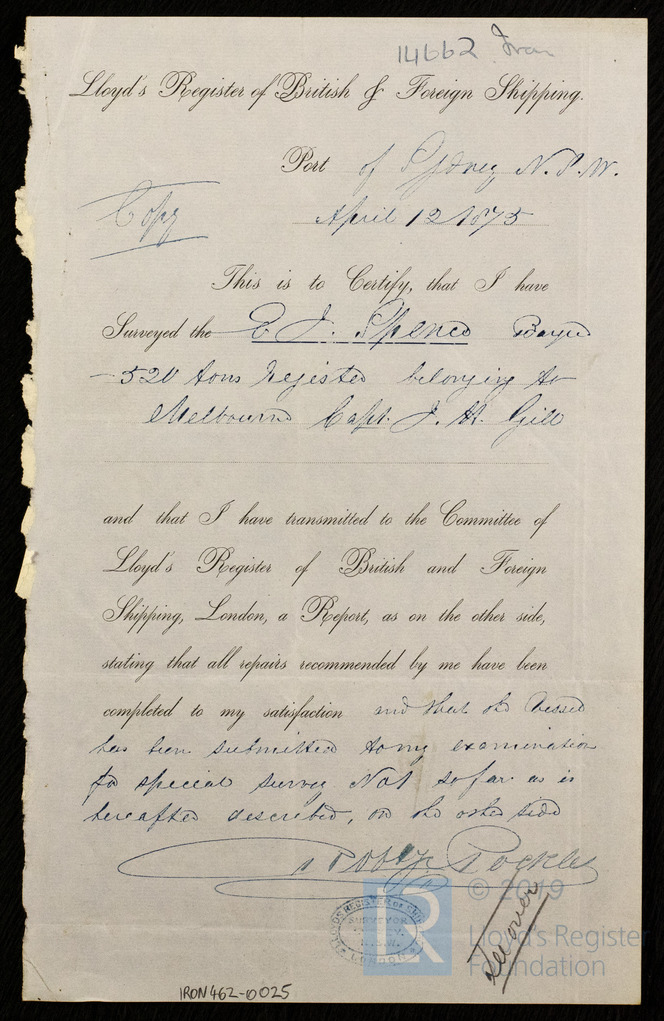 14662 Iron
Lloyd's Register of British & Foreign Shipping.
Port of Sydney N.S.W.
Copy
April 12 1875
This is to Certify, that I have
Surveyed the E J. Spence Barque
520 tons Register belonging to
Melbourne Capt. J. H. Gill
and that I have transmitted to the Committee of
Lloyd's Register of British and Foreign
Shipping, London, a Report, as on the other side,
stating that all repairs recommended by me have been
completed to my satisfaction and that the Vessel
has been submitted to my examination
for special survey No 1 so far as is
hereafter described, on the other side
Pockley
LLOYD'S REGISTER OF SHIPPING
SURVEYOR
N.S.W.
LONDON
over
© 2019
Lloyd's Register
Foundation
IRON462-0025